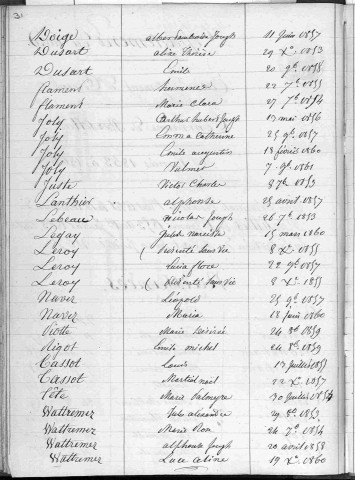 31
Doige Joseph 11 Juin 1857
Dusart Aline Thérèse 29 Xbre 1853
Dusart Emile 20 9bre 1858
flament 22 7bre 1855
flament Marie Clara 27 7bre 1854
Joly Arthur hubert Joseph 13 mai 1856
Joly Emma Catherine 25 9bre 1857
Joly Emile augustin 18 février 1860
Joly Palmer 7 9bre 1861
Juste Victor Charles 8 7bre 1853
Lanthier alphonse 25 avril 1857
Lebeau Nicolas Joseph 26 7bre 1853
Legay Narcisse 15 mars 1860
Leroy présenté sans vie 8 Xbre 1855
Leroy Lucia flore 22 9bre 1857
Leroy présenté sans vie 8 Xbre 1855
Naver Léopold 25 9bre 1857
Naver Maria 18 Juin 1860
Riotte Marie Désirée 24 8bre 1859
Rigot Emile michel 24 8bre 1859
Tassot Louis 13 Juillet 1855
Tassot Martial noël 22 Xbre 1857
Tête Marie Palmyre 30 Juillet 1854
Wattremez Jules alexandre 29 8bre 1853
Wattremez Marie 24 7bre 1854
Wattremez alphonse Joseph 20 avril 1858
Wattremez Luce aline 19 Xbre 1860